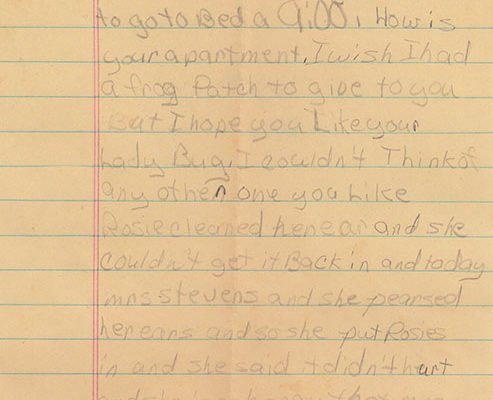 to go to Bed a 9:00, How is
your apartment, I wish I had
a frog Patch to give to you
But I hope you Like your
Lady Bug, I couldn't Think of
any other one you Like
Rosie cleaned her ear and she
couldn't get it Back in and today
mrs stevens and she pearsed
her ears and so she put Rosies
in and she said it didn't hurt